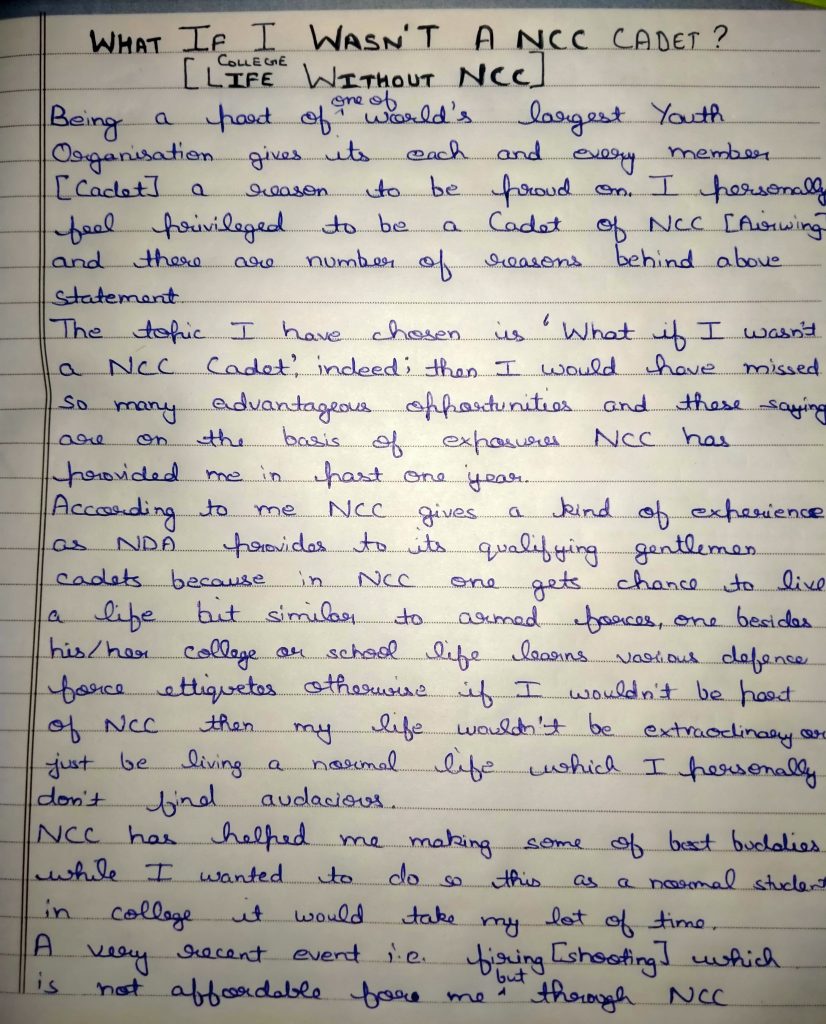 WHAT IF I WASN'T A NCC CADET?
[COLLEGE LIFE WITHOUT NCC]
Being a part of one of world's largest Youth
Organisation gives its each and every member
[Cadet] a reason to be proud on. I personally
feel privileged to be a Cadet of NCC [Airwing]
and there are number of reasons behind above
statement.
The topic I have chosen is 'What if I wasn't
a NCC Cadet', indeed; then I would have missed
so many advantageous opportunities and these saying
are on the basis of exposures NCC has
provided me in past one year.
According to me NCC gives a kind of experience
as NDA provides to its qualifying gentlemen
cadets because in NCC one gets chance to live
a life bit similar to armed forces, one besides
his/her college or school life learns various defence
force ettiquetes otherwise if I wouldn't be part
of NCC then my life wouldn't be extraordinary or
just be living a normal life which I personally
don't find audacious.
NCC has helped me making some of best buddies
while I wanted to do so this as a normal student
in college it would take my lot of time.
A very recent event i.e. firing [shooting] which
is not affordable fore me but through NCC